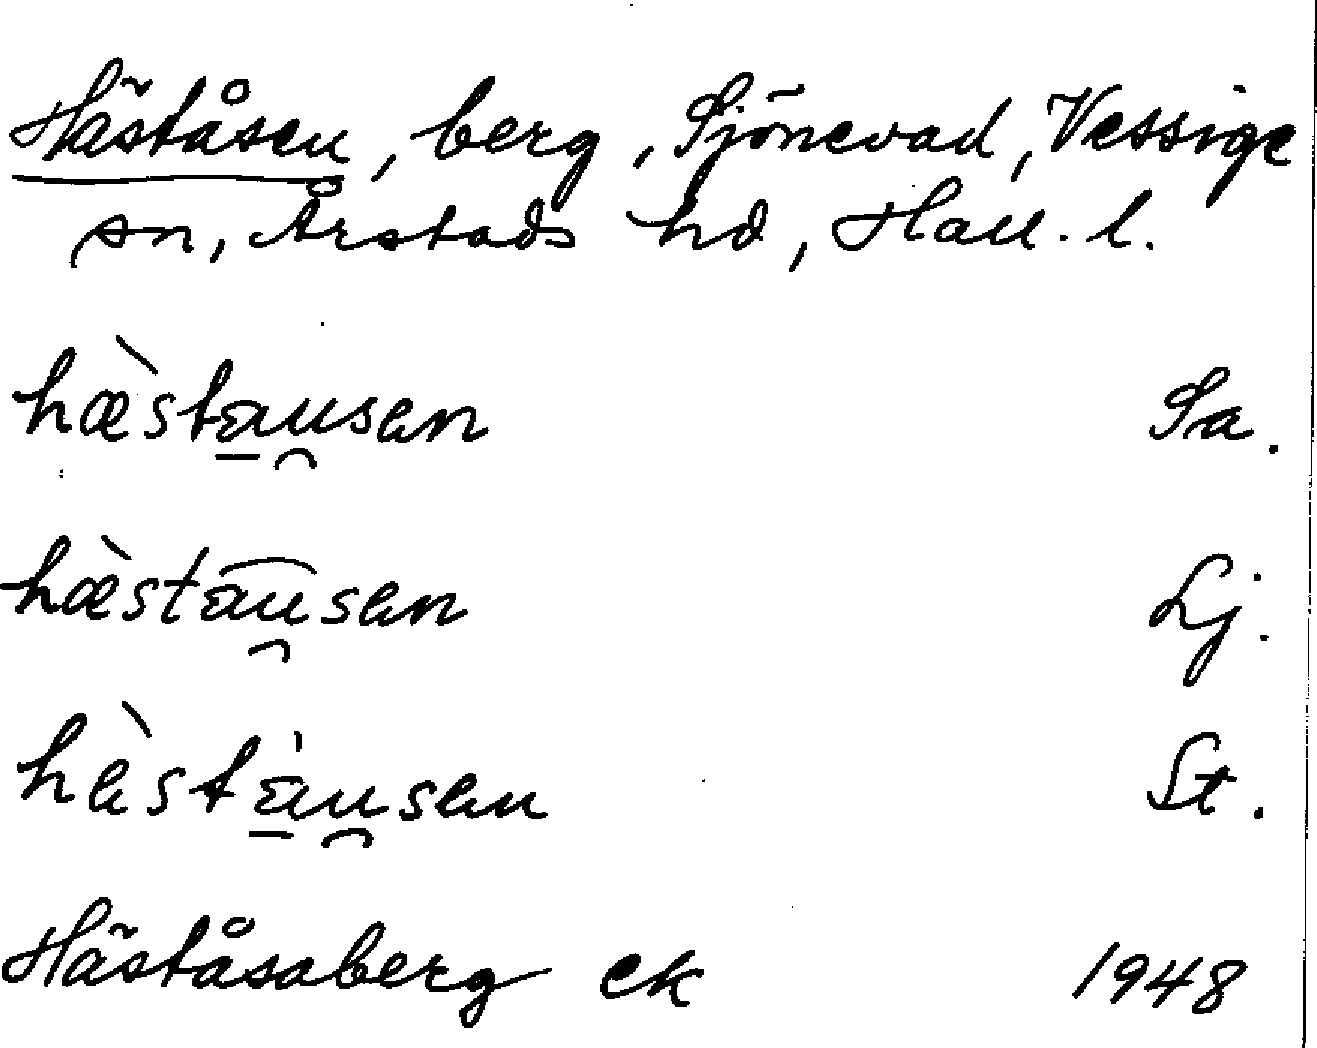 Häståsen, berg, Sjönevad, Vessige
sn, Årstads hd, Hall. l.
hæ̀sta̱u̯sen Sa.
hæ̀stau̯sen Lj.
hèstàu̯sen St.
Häståsaberg ek 1948